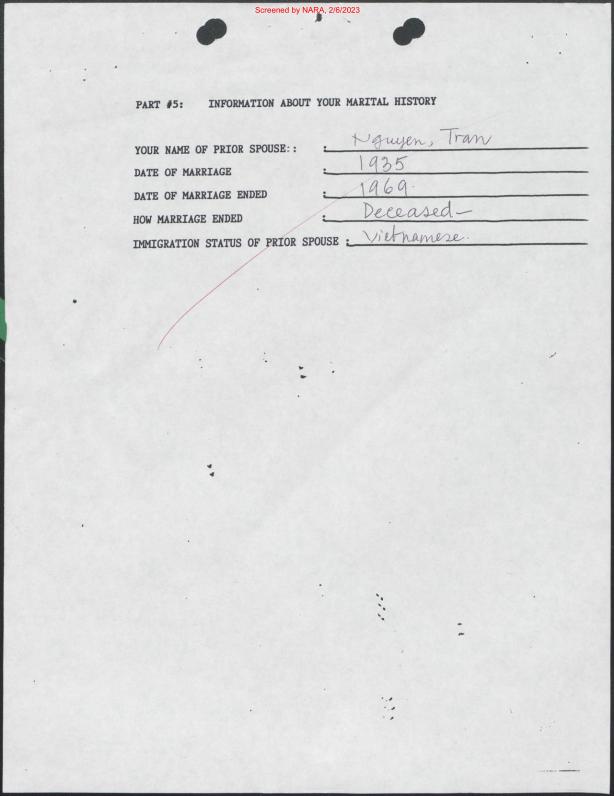 Screened by NARA, 2/6/2023
PART #5: INFORMATION ABOUT YOUR MARITAL HISTORY
YOUR NAME OF PRIOR SPOUSE:: : Nguyen, Tran
DATE OF MARRIAGE : 1935
DATE OF MARRIAGE ENDED : 1969.
HOW MARRIAGE ENDED : Deceased—
IMMIGRATION STATUS OF PRIOR SPOUSE : Vietnamese.